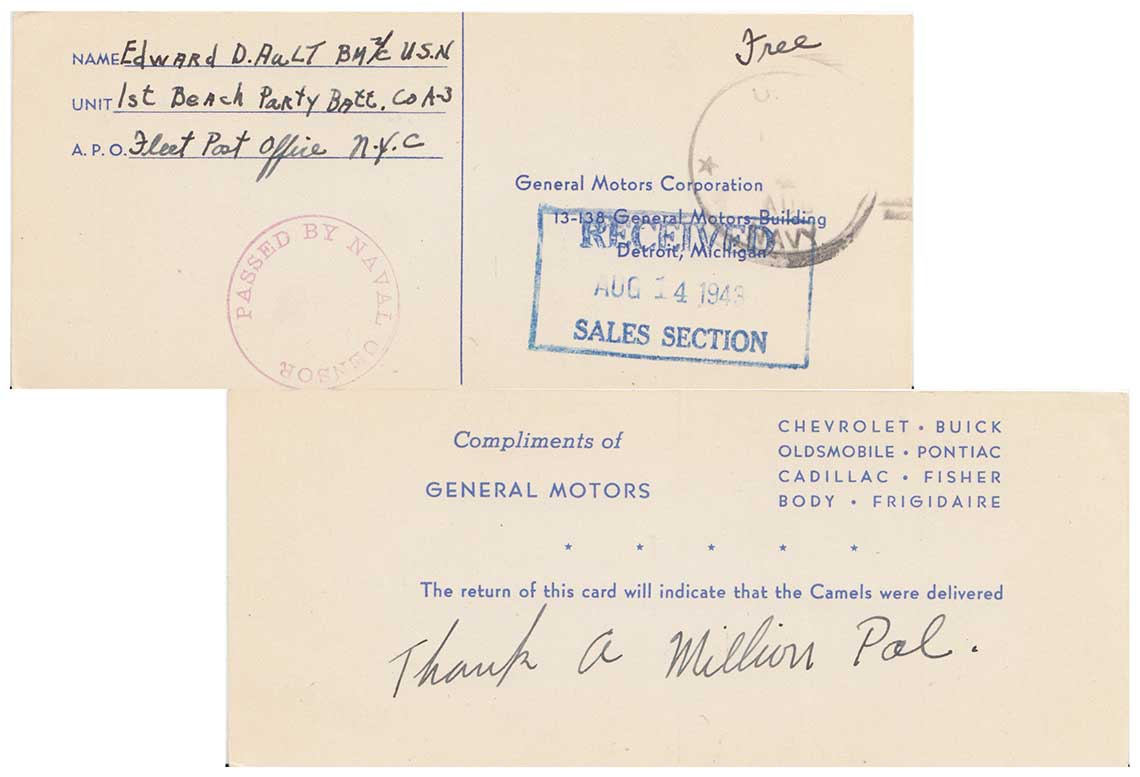 NAME Edward D. Ault BM 2/c U.S.N
UNIT 1st Beach Party Batt. Co A-3
A.P.O. Fleet Post Office N.Y.C
PASSED BY NAVAL CENSOR
Free
U.
NAVY
General Motors Corporation
13-138 General Motors Building
Detroit, Michigan
RECEIVED
AUG 14 1943
SALES SECTION
Compliments of
GENERAL MOTORS
CHEVROLET • BUICK
OLDSMOBILE • PONTIAC
CADILLAC • FISHER
BODY • FRIGIDAIRE
The return of this card will indicate that the Camels were delivered
Thank a Million Pal.